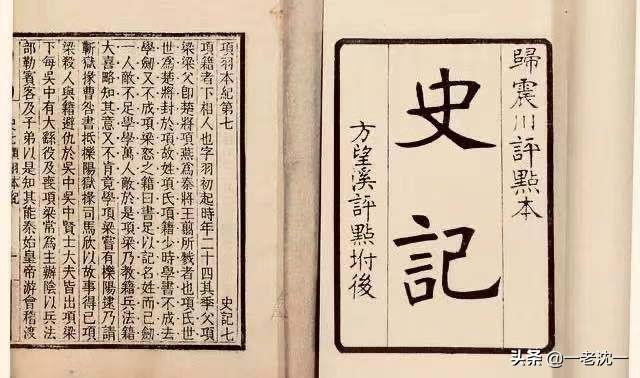 歸震川評點本
史記
方望溪評點坿後
項羽本紀第七
史記七
項籍者下相人也字羽初起時年二十四其季父項
梁梁父卽楚將項燕爲秦將王翦所戮者也項氏世
世爲楚將封於項故姓項氏項籍少時學書不成去
學劍又不成項梁怒之籍曰書足以記名姓而已劍
一人敵不足學學萬人敵於是項梁乃敎籍兵法籍
大喜略知其意又不肯竟學項梁嘗有櫟陽逮乃請
蘄獄掾曹咎書抵櫟陽獄掾司馬欣以故事得已項
梁殺人與籍避仇於吳中吳中賢士大夫皆出項梁
下每吳中有大繇役及喪項梁常爲主辦陰以兵法
部勒賓客及子弟以是知其能秦始皇帝游會稽渡
头条 @一老沈一